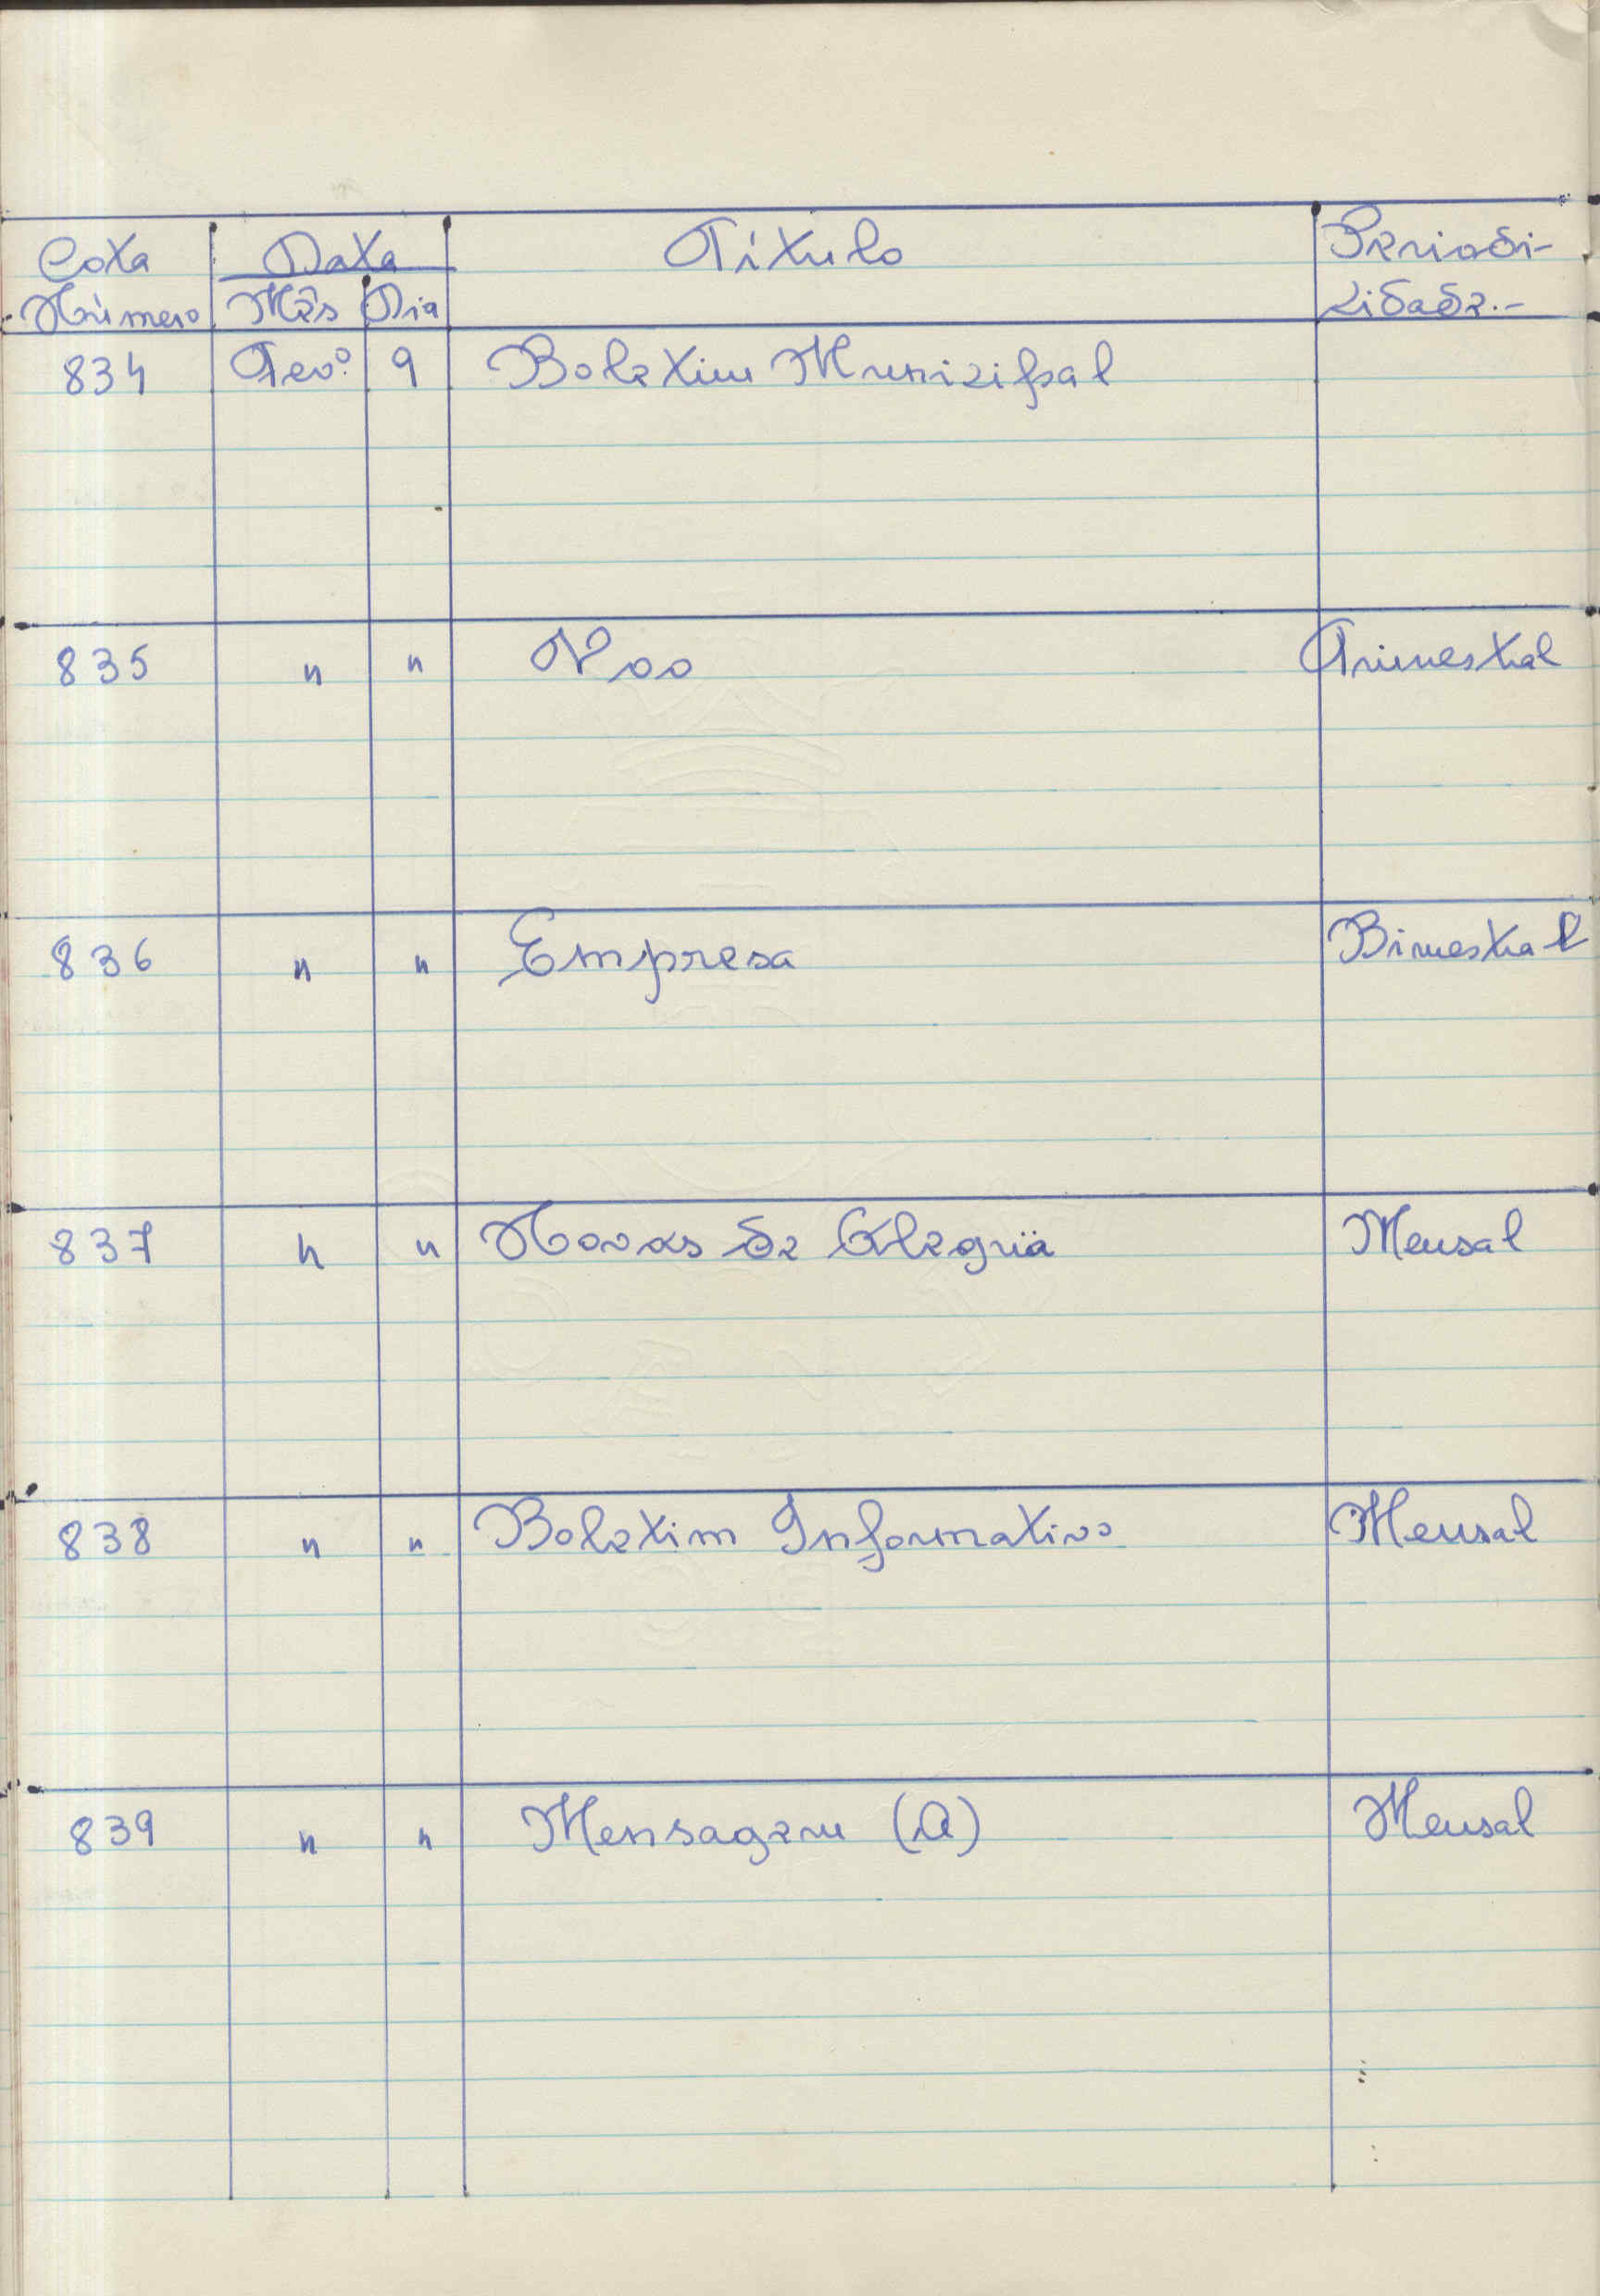 Cota Data Título Periodi-
Número Mês Dia cidade.-
834 Fevº. 9 Boletim Municipal
835 " " Voo Trimestral
836 " " Empresa Bimestral
837 " " Novas de Alegria Mensal
838 " " Boletim Informativo Mensal
839 " " Mensagem (A) Mensal